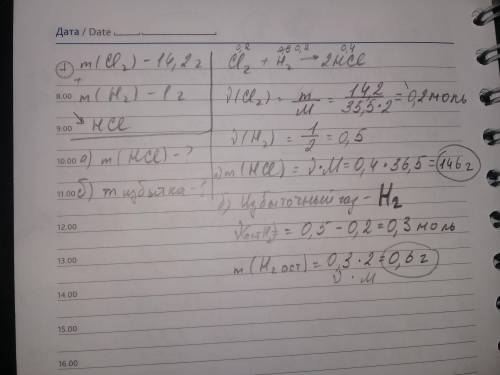 Дата / Date
m(Cl₂) - 14,2 г
+
8.00 m(H₂) - 1 г
9.00 ↘ HCl
10.00 а) m(HCl) - ?
11.00 б) m избытка - ?
12.00
13.00
14.00
15.00
16.00
0,2 0,2 0,4
Cl₂ + H₂ → 2HCl
ν(Cl₂) = m/M = 14,2/35,5·2 = 0,2 моль
ν(H₂) = 1/2 = 0,5
а) m(HCl) = ν·M = 0,4·36,5 = 146 г
б) Избыточный газ - H₂
ν ост H₂ = 0,5 - 0,2 = 0,3 моль
m(H₂ ост) = 0,3·2 = 0,6 г
ν · M